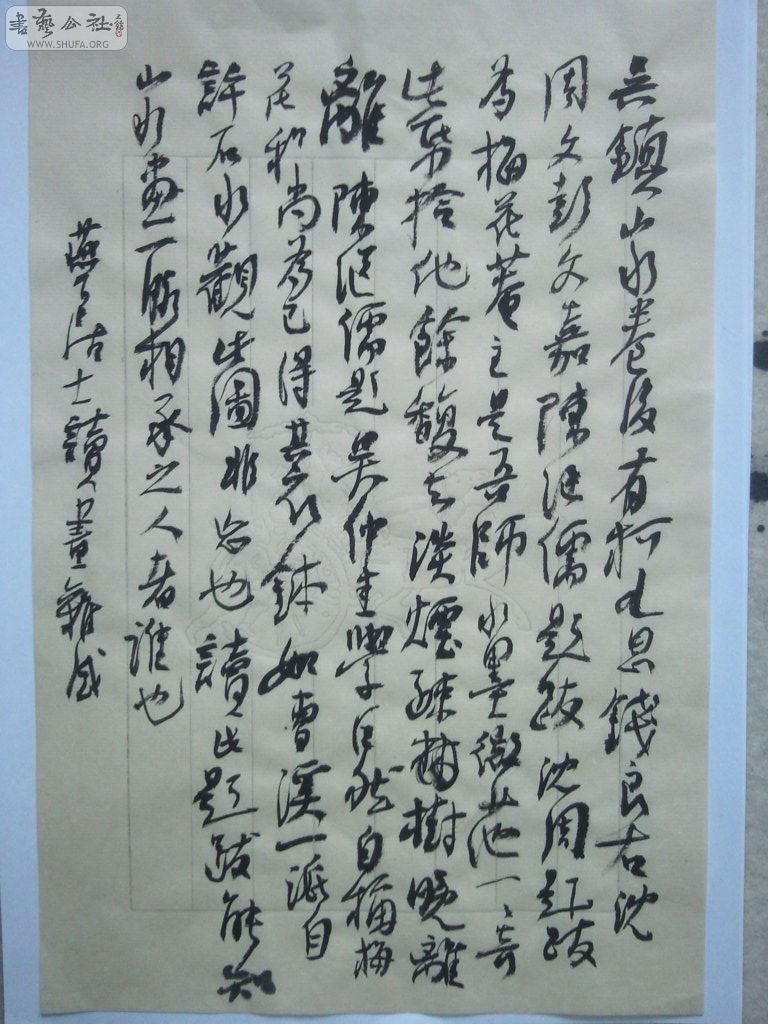 吴鎮山水卷後有柯九思錢良右沈
周文彭文嘉陳继儒題跋沈周题跋
为梅花菴主是吾師水墨微茫一一奇
此幣捨他餘馥去淡煙疎樹晚離
離陳继儒題吴仲圭學巨然自
花和尚為已得其衣鉢如曹溪一派自
許石水觀此圖非公也讀此題跋能知
山水畫一脈相承之人者誰也
居士讀畫雜感
書藝公社
WWW.SHUFA.ORG